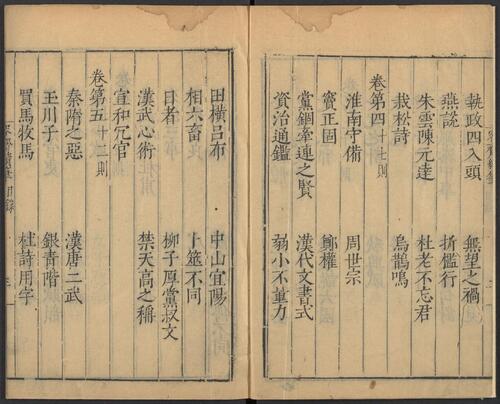 執政四入頭 無望之禍
燕說 折檻行
朱雲陳元達 杜老不忘君
栽松詩 烏鵲鳴
卷第四十七則
淮南守備 周世宗
竇正固 鄭權
黨錮牽連之賢 漢代文書式
資治通鑑 弱小不量力
田橫呂布 中山宜陽
相六畜 卜筮不同
日者 柳子厚黨叔文
漢武心術 禁天高之稱
宣和冗官
卷第五十二則
秦隋之惡 漢唐二武
玉川子 銀青階
買馬牧馬 杜詩用字
目錄